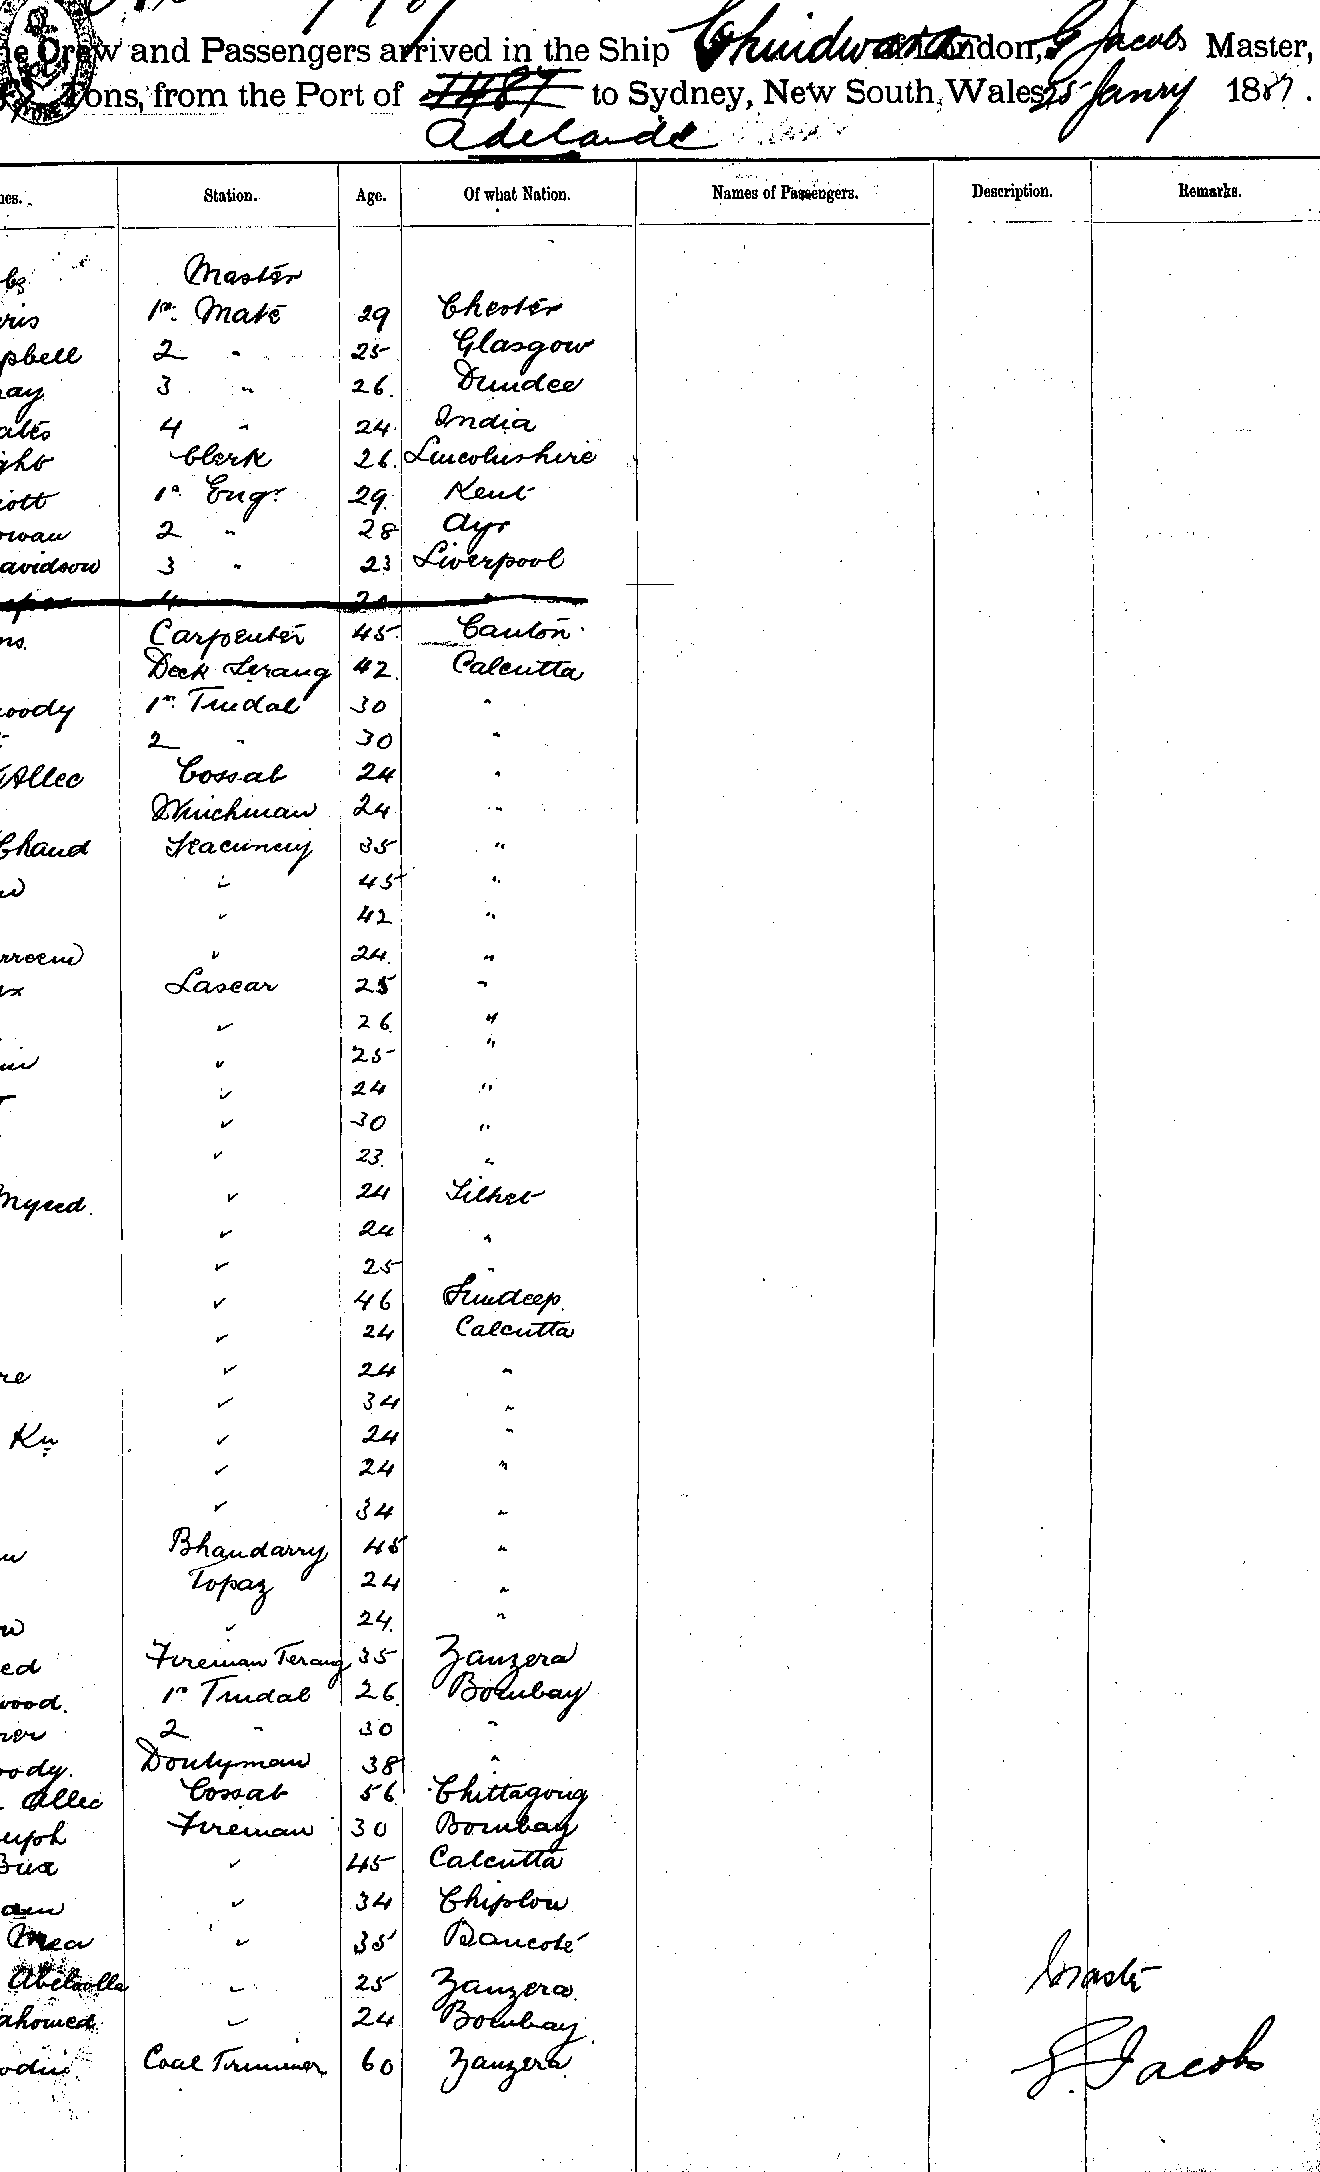 he Crew and Passengers arrived in the Ship Chindwara London, G Jacobs Master,
Tons, from the Port of 1487 to Sydney, New South Wales 25 Janry 1887.
Adelaide
mes. Station. Age. Of what Nation. Names of Passengers. Description. Remarks.
bs Master
rris 1st. Mate 29 Chester
pbell 2 " 25 Glasgow
ray 3 " 26. Dundee
ates 4 " 24 India
ght Clerk 26. Lincolnshire
iott 1st Engr. 29. Kent
owan 2 " 28 Ayr
avidson 3 " 23 Liverpool
4 "
ns. Carpenter 45. Canton
Deck Serang 42. Calcutta
oody 1st. Tindal 30 "
2 " 30 "
Allec Cossab 24 "
Winchman 24 "
Chand Seacunny 35 "
" 45 "
" 42 "
rreem " 24. "
ux Lascar 25 "
" 26 "
" 25 "
" 24 "
" 30 "
" 23. "
Myeed. " 24 Silhet
" 24 "
" 25 "
" 46 Sundeep.
" 24 Calcutta
re " 24 "
" 34 "
Kn " 24 "
" 24 "
" 34 "
Bhandarry 45 "
Topaz 24 "
" 24. "
ed Fireman Serang 35 Zanzera
wood. 1st Tindal 26. Bombay
rer 2 " 30 "
oody. Donkyman 38 "
Allec Cossab 56 Chittagong
uph Fireman 30 Bombay
Bux " 45 Calcutta
" 34 Chiplon
Mea " 35 Bancote
Abdoolla " 25 Zanzera.
ahomed. " 24 Bombay.
odin. Coal Trimmer 60 Zanzera.
Master
G. Jacobs